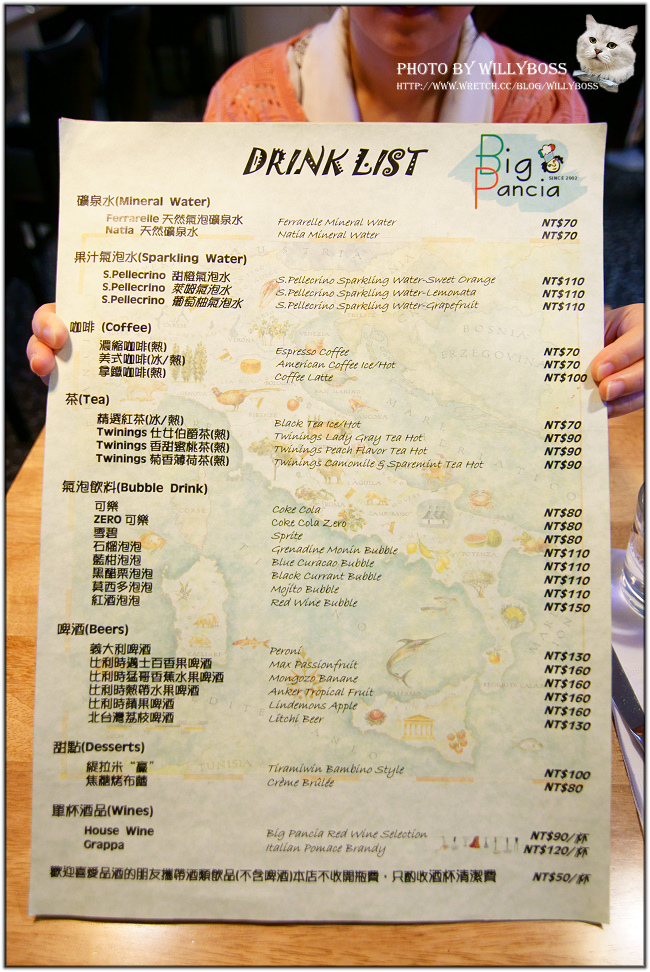 PHOTO BY WILLYBOSS
HTTP://WWW.WRETCH.CC/BLOG/WILLYBOSS
DRINK LIST
Big Pancia
SINCE 2002
礦泉水(Mineral Water)
Ferrarelle 天然氣泡礦泉水 Ferrarelle Mineral Water NT$70
Natia 天然礦泉水 Natia Mineral Water NT$70
果汁氣泡水(Sparkling Water)
S.Pellecrino 甜橙氣泡水 S.Pellecrino Sparkling Water-Sweet Orange NT$110
S.Pellecrino 萊姆氣泡水 S.Pellecrino Sparkling Water-Lemonata NT$110
S.Pellecrino 葡萄柚氣泡水 S.Pellecrino Sparkling Water-Grapefruit NT$110
咖啡 (Coffee)
濃縮咖啡(熱) Espresso Coffee NT$70
美式咖啡(冰/熱) American Coffee Ice/Hot NT$70
拿鐵咖啡(熱) Coffee Latte NT$100
茶(Tea)
精選紅茶(冰/熱) Black Tea Ice/Hot NT$70
Twinings 仕女伯爵茶(熱) Twinings Lady Gray Tea Hot NT$90
Twinings 香甜蜜桃茶(熱) Twinings Peach Flavor Tea Hot NT$90
Twinings 菊香薄荷茶(熱) Twinings Camomile & Sparemint Tea Hot NT$90
氣泡飲料(Bubble Drink)
可樂 Coke Cola NT$80
ZERO 可樂 Coke Cola Zero NT$80
雪碧 Sprite NT$80
石榴泡泡 Grenadine Monin Bubble NT$110
藍柑泡泡 Blue Curacao Bubble NT$110
黑醋栗泡泡 Black Currant Bubble NT$110
莫西多泡泡 Mojito Bubble NT$110
紅酒泡泡 Red Wine Bubble NT$150
啤酒(Beers)
義大利啤酒 Peroni NT$130
比利時邁士百香果啤酒 Max Passionfruit NT$160
比利時猛哥香蕉水果啤酒 Mongozo Banane NT$160
比利時熱帶水果啤酒 Anker Tropical Fruit NT$160
比利時蘋果啤酒 Lindemons Apple NT$160
北台灣荔枝啤酒 Litchi Beer NT$130
甜點(Desserts)
緹拉米“贏” Tiramiwin Bambino Style NT$100
焦糖烤布蕾 Crème Brûlée NT$80
單杯酒品(Wines)
House Wine Big Pancia Red Wine Selection NT$90/杯
Grappa Italian Pomace Brandy NT$120/杯
歡迎喜愛品酒的朋友攜帶酒類飲品(不含啤酒)本店不收開瓶費，只酌收酒杯清潔費 NT$50/杯